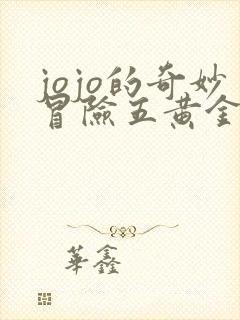 jojo的奇妙
冒險五黃金
華鑫